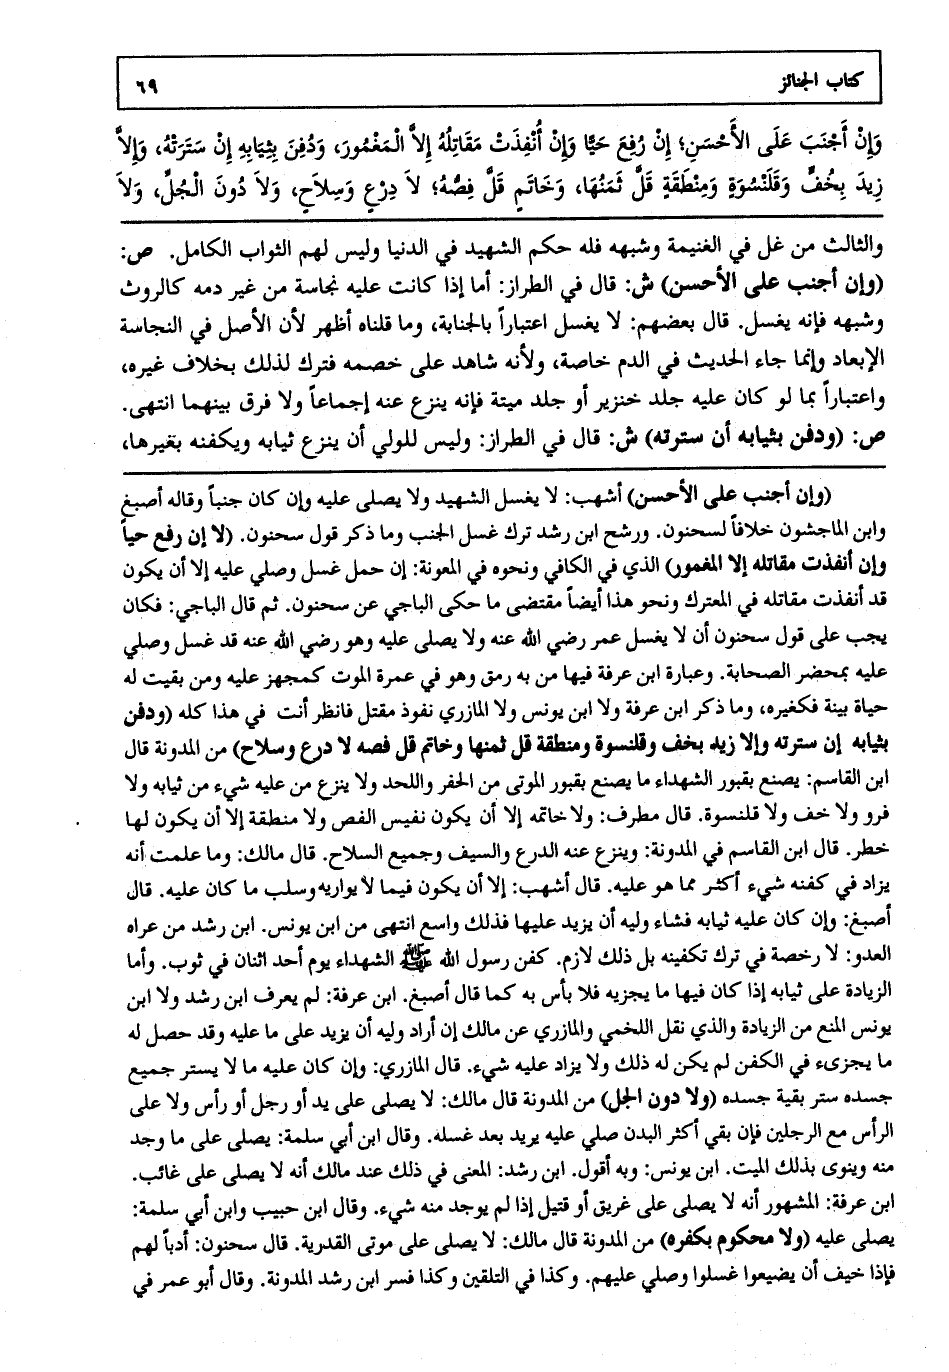 كتاب الجنائز
٦٩
وَإِنْ أَجْنَبَ عَلَى الأَحْسَنِ؛ إِنْ رُفِعَ حَيًّا وَإِنْ أُنْفِذَتْ مَقَاتِلُهُ إِلاَّ الْمَغْمُورَ، وَدُفِنَ بِثِيَابِهِ إِنْ سَتَرَتْهُ، وَإِلاَّ
زِيدَ بِخُفٍّ وَقَلَنْسُوَةٍ وَمِنْطَقَةٍ قَلَّ ثَمَنُهَا، وَخَاتَمٍ قَلَّ فِصُّهُ؛ لاَ دِرْعٍ وَسِلاَحٍ، وَلاَ دُونَ الْجُلِّ، وَلاَ
والثالث من غل في الغنيمة وشبهه فله حكم الشهيد في الدنيا وليس لهم الثواب الكامل. ص:
(وإن أجنب على الأحسن) ش: قال في الطراز: أما إذا كانت عليه نجاسة من غير دمه كالروث
وشبهه فإنه يغسل. قال بعضهم: لا يغسل اعتباراً بالجنابة، وما قلناه أظهر لأن الأصل في النجاسة
الإبعاد وإنما جاء الحديث في الدم خاصة، ولأنه شاهد على خصمه فترك لذلك بخلاف غيره،
واعتباراً بما لو كان عليه جلد خنزير أو جلد ميتة فإنه ينزع عنه إجماعاً ولا فرق بينهما انتهى.
ص: (ودفن بثيابه أن سترته) ش: قال في الطراز: وليس للولي أن ينزع ثيابه ويكفنه بغيرها،
(وإن أجنب على الأحسن) أشهب: لا يغسل الشهيد ولا يصلى عليه وإن كان جنباً وقاله أصبغ
وابن الماجشون خلافاً لسحنون. ورشح ابن رشد ترك غسل الجنب وما ذكر قول سحنون. (لا إن رفع حياً
وإن أنفذت مقاتله إلا المغمور) الذي في الكافي ونحوه في المعونة: إن حمل غسل وصلي عليه إلا أن يكون
قد أنفذت مقاتله في المعترك ونحو هذا أيضاً مقتضى ما حكى الباجي عن سحنون. ثم قال الباجي: فكان
يجب على قول سحنون أن لا يغسل عمر رضي الله عنه ولا يصلى عليه وهو رضي الله عنه قد غسل وصلي
عليه بمحضر الصحابة. وعبارة ابن عرفة فيها من به رمق وهو في عمرة الموت كمجهز عليه ومن بقيت له
حياة بينة فكغيره، وما ذكر ابن عرفة ولا ابن يونس ولا المازري نفوذ مقتل فانظر أنت في هذا كله (ودفن
بثيابه إن سترته وإلا زيد بخف وقلنسوة ومنطقة قل ثمنها وخاتم قل فصه لا درع وسلاح) من المدونة قال
ابن القاسم: يصنع بقبور الشهداء ما يصنع بقبور الموتى من الحفر واللحد ولا ينزع من عليه شيء من ثيابه ولا
فرو ولا خف ولا قلنسوة. قال مطرف: ولا خاتمه إلا أن يكون نفيس الفص ولا منطقة إلا أن يكون لها
خطر. قال ابن القاسم في المدونة: وينزع عنه الدرع والسيف وجميع السلاح. قال مالك: وما علمت أنه
يزاد في كفنه شيء أكثر مما هو عليه. قال أشهب: إلا أن يكون فيما لا يواريه وسلب ما كان عليه. قال
أصبغ: وإن كان عليه ثيابه فشاء وليه أن يزيد عليها فذلك واسع انتهى من ابن يونس. ابن رشد من عراه
العدو: لا رخصة في ترك تكفينه بل ذلك لازم. كفن رسول الله ﷺ الشهداء يوم أحد اثنان في ثوب. وأما
الزيادة على ثيابه إذا كان فيها ما يجزيه فلا بأس به كما قال أصبغ. ابن عرفة: لم يعرف ابن رشد ولا ابن
يونس المنع من الزيادة والذي نقل اللخمي والمازري عن مالك إن أراد وليه أن يزيد على ما عليه وقد حصل له
ما يجزىء في الكفن لم يكن له ذلك ولا يزاد عليه شيء. قال المازري: وإن كان عليه ما لا يستر جميع
جسده ستر بقية جسده (ولا دون الجل) من المدونة قال مالك: لا يصلى على يد أو رجل أو رأس ولا على
الرأس مع الرجلين فإن بقي أكثر البدن صلي عليه يريد بعد غسله. وقال ابن أبي سلمة: يصلى على ما وجد
منه وينوى بذلك الميت. ابن يونس: وبه أقول. ابن رشد: المعنى في ذلك عند مالك أنه لا يصلى على غائب.
ابن عرفة: المشهور أنه لا يصلى على غريق أو قتيل إذا لم يوجد منه شيء. وقال ابن حبيب وابن أبي سلمة:
يصلى عليه (ولا محكوم بكفره) من المدونة قال مالك: لا يصلى على موتى القدرية. قال سحنون: أدباً لهم
فإذا خيف أن يضيعوا غسلوا وصلي عليهم. وكذا في التلقين وكذا فسر ابن رشد المدونة. وقال أبو عمر في